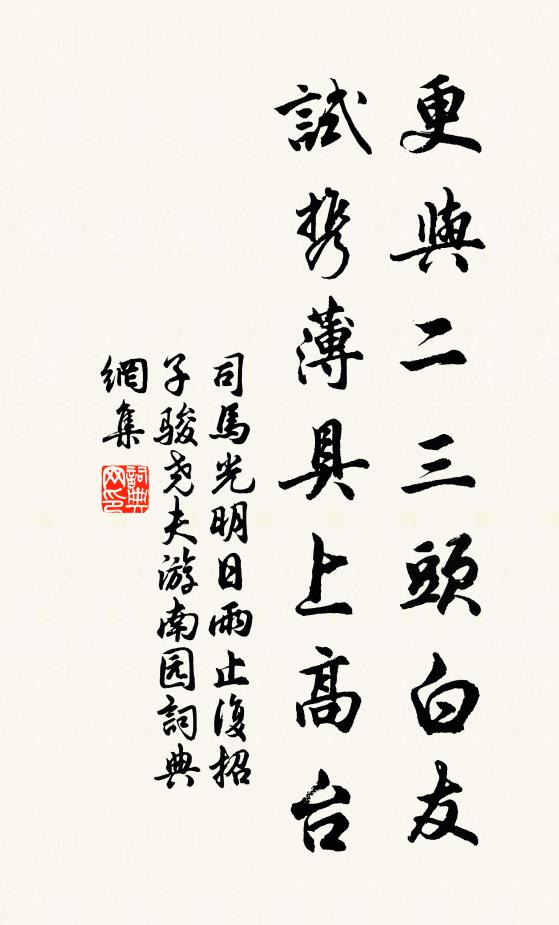 更與二三頭白友
試攜薄具上高台
司馬光明日雨止復招
子駿尧夫游南园詞典
網集
詞典網印